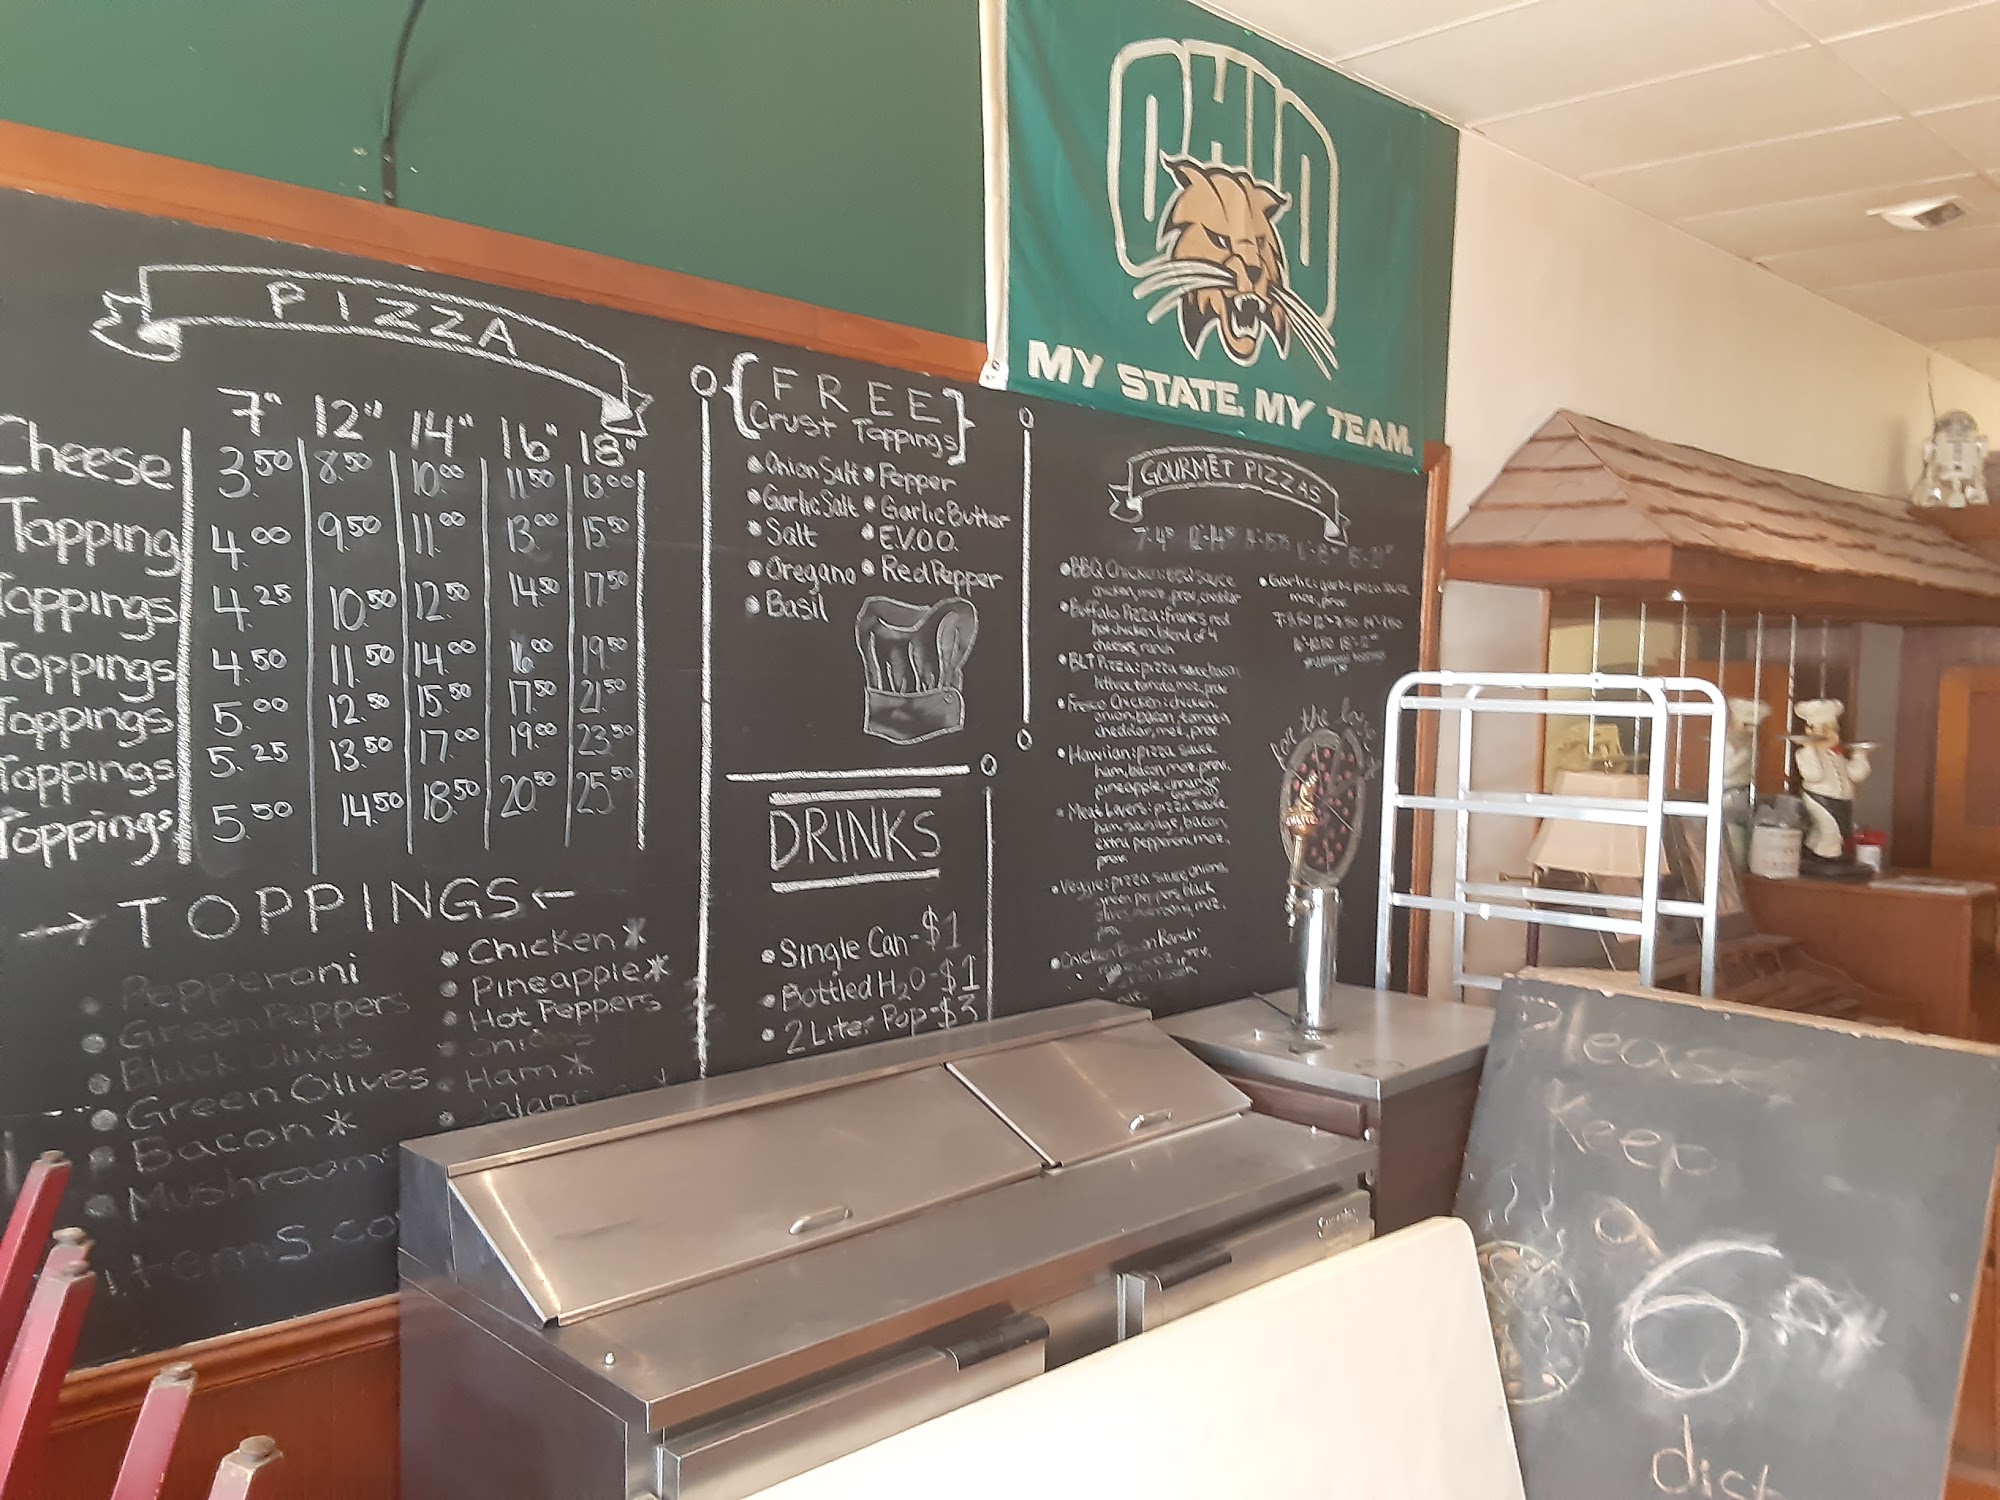 OHIO
MY STATE. MY TEAM.
PIZZA
7" 12" 14" 16" 18"
Cheese 3.50 8.50 10.00 11.50 13.00
Topping 4.00 9.50 11.00 13.00 15.50
Toppings 4.25 10.50 12.50 14.50 17.50
Toppings 4.50 11.50 14.00 16.00 19.50
Toppings 5.00 12.50 15.50 17.50 21.50
Toppings 5.25 13.50 17.00 19.00 23.50
Toppings 5.50 14.50 18.50 20.50 25.50
TOPPINGS
Pepperoni
Green Peppers
Black Olives
Green Olives
Bacon *
Mushrooms
Items
Chicken *
Pineapple *
Hot Peppers
Onions
Ham *
FREE
Crust Toppings
Onion Salt
Garlic Salt
Salt
Oregano
Basil
Pepper
Garlic Butter
E.V.O.O.
Red Pepper
DRINKS
Single Can - $1
Bottled H2O - $1
2 Liter Pop - $3
GOURMET PIZZAS
BBQ Chicken: BBQ sauce
chicken, moz, prov, cheddar
Buffalo Pizza: Frank's red
hot chicken, blend of 4
cheeses, ranch
BLT Pizza: pizza sauce, bacon,
lettuce, tomato, moz, prov
Fresco Chicken: chicken,
onion, bacon, tomato,
cheddar, moz, prov
Hawiian: pizza sauce,
ham, bacon, moz, prov,
pineapple, cinnamon
Meat Lovers: pizza sauce,
ham, sausage, bacon,
extra pepperoni, moz,
prov.
Veggie: pizza sauce, onions,
green peppers, black
olives, mushrooms, moz,
prov
Chicken Bacon Ranch:
Garlic: garlic pizza sauce,
moz, prov
for the love
Please
Keep
a
6